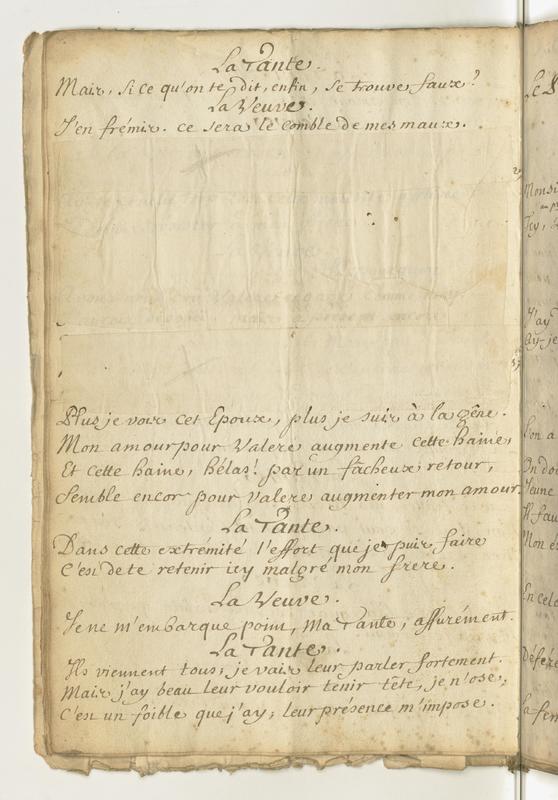 La Tante.
Mais, si ce qu'on te dit, enfin, se trouve faux?
La Veuve.
J'en frémis. ce sera le comble de mes maux.
Plus je vois cet Epoux, plus je suis à la gêne.
Mon amour pour Valere augmente cette haine,
Et cette haine, hélas! par un facheux retour,
Semble encor pour Valere augmenter mon amour.
La Tante.
Dans cette extrémité l'effort que je puis faire
C'est de te retenir icy malgré mon frere.
La Veuve.
Je ne m'embarque point, Ma Tante, assurément.
La Tante.
Ils viennent tous; je vais leur parler fortement.
Mais j'ay beau leur vouloir tenir tête, je n'ose;
C'est un foible que j'ay; leur présence m'impose.